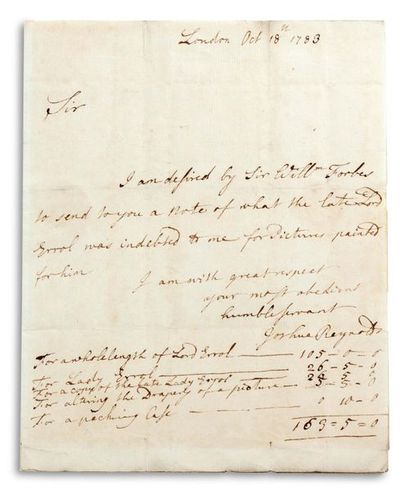 London Oct 18th 1783
Sir
I am desired by Sir Willm Forbes
to send to you a note of what the late Lord
Errol was indebted to me for Pictures painted
for him
I am with great respect
your most obedient
humble servant
Joshua Reynolds
For a whole length of Lord Errol — 105 - 0 - 0
For Lady Errol — 26 - 5 - 0
For a copy of the late Lady Errol — 26 - 5 - 0
For altering the Drapery of a picture — 5 - 5 - 0
For a packing Case — 0 10 - 0
163 = 5 = 0